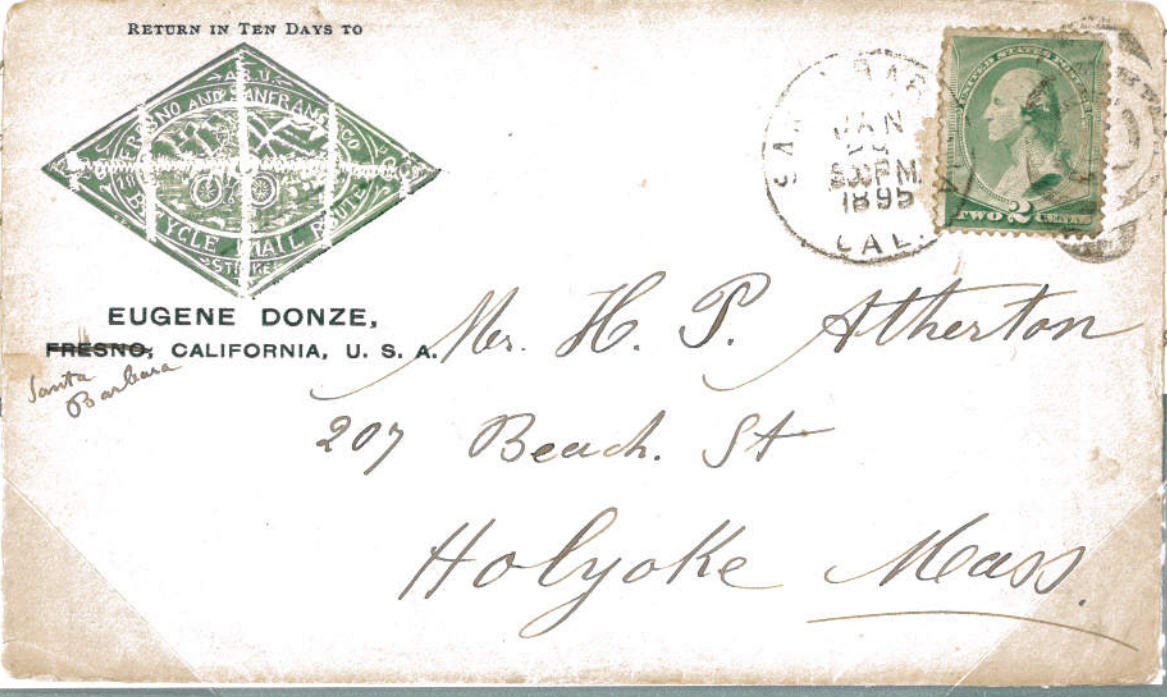 RETURN IN TEN DAYS TO
A.R.U.
FRESNO AND SANFRANSISCO
BICYCLE MAIL ROUTE
STRIKE
EUGENE DONZE,
FRESNO, CALIFORNIA, U. S. A.
Santa
Barbara
SANTA BARBARA
JAN
PM
1895
CAL.
UNITED STATES POSTAGE
TWO 2 CENTS
Mr. H. P. Atherton
207 Beach. St
Holyoke Mass.